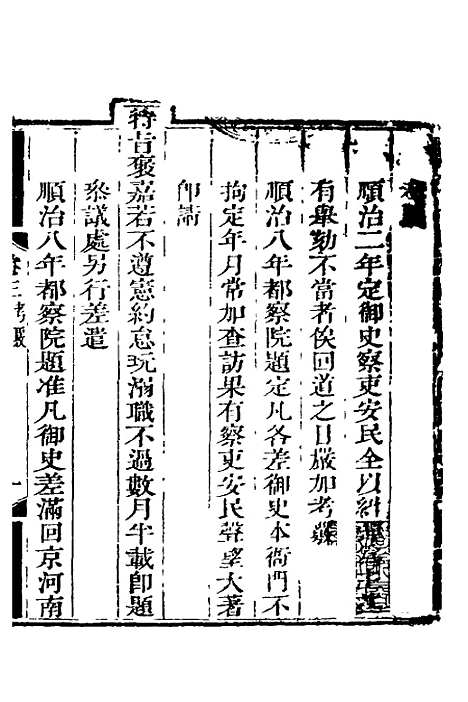 考
順治二年定御史察吏安民全以糾
有舉劾不當者俟回道之日嚴加考
順治八年都察院題定凡各差御史本衙門不
拘定年月常加查訪果有察吏安民聲望大著
即請
特旨褒嘉若不遵憲約怠玩溺職不過數月半載即題
叅議處另行差遣
順治八年都察院題准凡御史差滿回京河南
卷三 考覈 一